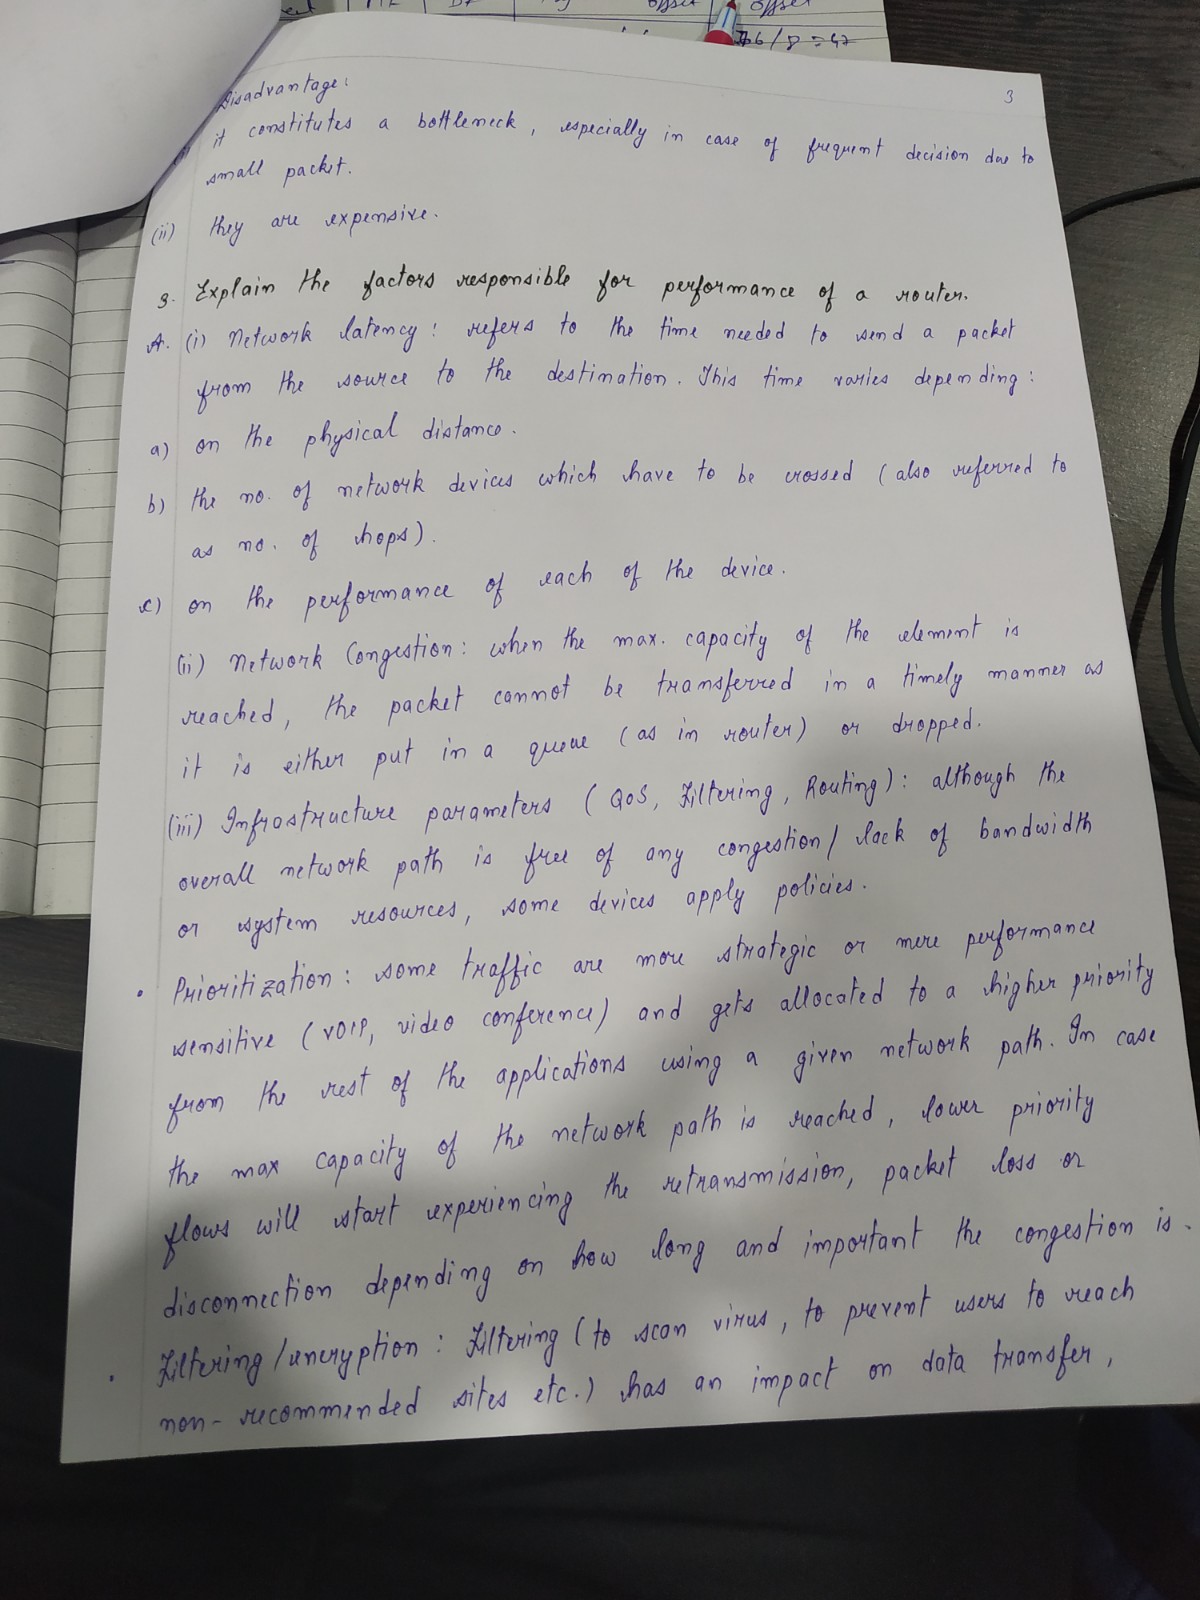 3
Disadvantage:
it constitutes a bottleneck, especially in case of frequent decision due to
small packet.
(ii) they are expensive.
3. Explain the factors responsible for performance of a router.
A. (i) Network latency: refers to the time needed to send a packet
from the source to the destination. This time varies depending:
a) on the physical distance.
b) the no. of network devices which have to be crossed (also referred to
as no. of hops).
c) on the performance of each of the device.
(ii) Network Congestion: when the max. capacity of the element is
reached, the packet cannot be transferred in a timely manner as
it is either put in a queue (as in router) or dropped.
(iii) Infrastructure parameters (QoS, Filtering, Routing): although the
overall network path is free of any congestion/ lack of bandwidth
or system resources, some devices apply policies.
• Prioritization: some traffic are more strategic or more performance
sensitive (VOIP, video conference) and gets allocated to a higher priority
from the rest of the applications using a given network path. In case
the max capacity of the network path is reached, lower priority
flows will start experiencing the retransmission, packet loss or
disconnection depending on how long and important the congestion is.
• Filtering/encryption: Filtering (to scan virus, to prevent users to reach
non-recommended sites etc.) has an impact on data transfer,